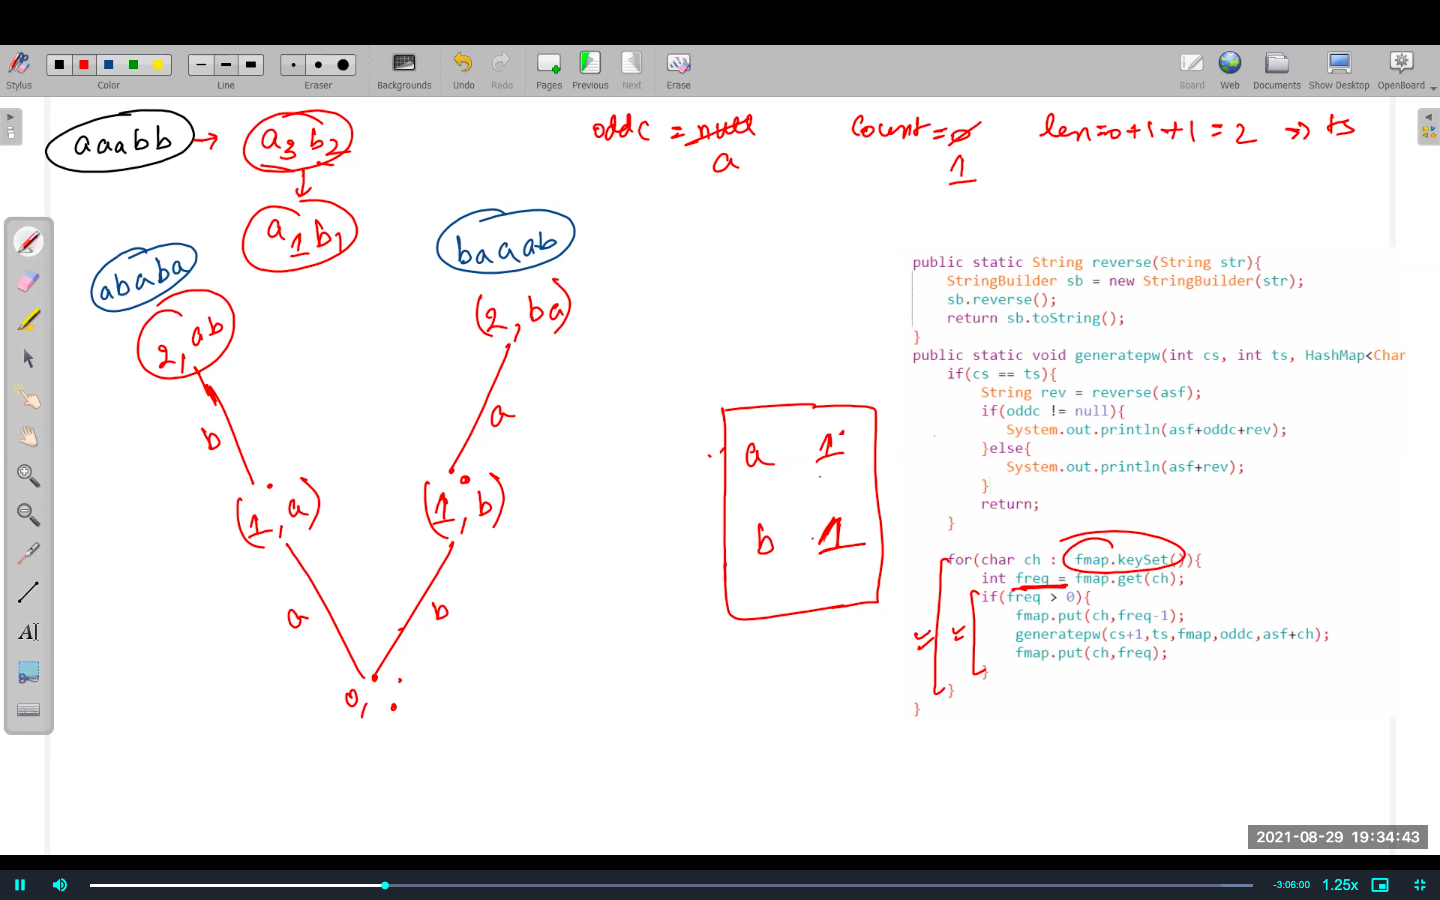 Stylus Color Line Eraser Backgrounds Undo Redo Pages Previous Next Erase Board Web Documents Show Desktop OpenBoard
aaabb → a3 b2
oddc = null
a
count = 0
1
len=0+1+1 = 2 => ts
a1 b1
ababa
baaab
2, ab
(2, ba)
b
a
(1, a)
(1, b)
a
b
0, .
a 1
b 1
public static String reverse(String str){
StringBuilder sb = new StringBuilder(str);
sb.reverse();
return sb.toString();
}
public static void generatepw(int cs, int ts, HashMap<Char
if(cs == ts){
String rev = reverse(asf);
if(oddc != null){
System.out.println(asf+oddc+rev);
}else{
System.out.println(asf+rev);
}
return;
}
for(char ch : fmap.keySet()){
int freq = fmap.get(ch);
if(freq > 0){
fmap.put(ch,freq-1);
generatepw(cs+1,ts,fmap,oddc,asf+ch);
fmap.put(ch,freq);
}
}
}
2021-08-29 19:34:43
-3:06:00 1.25x